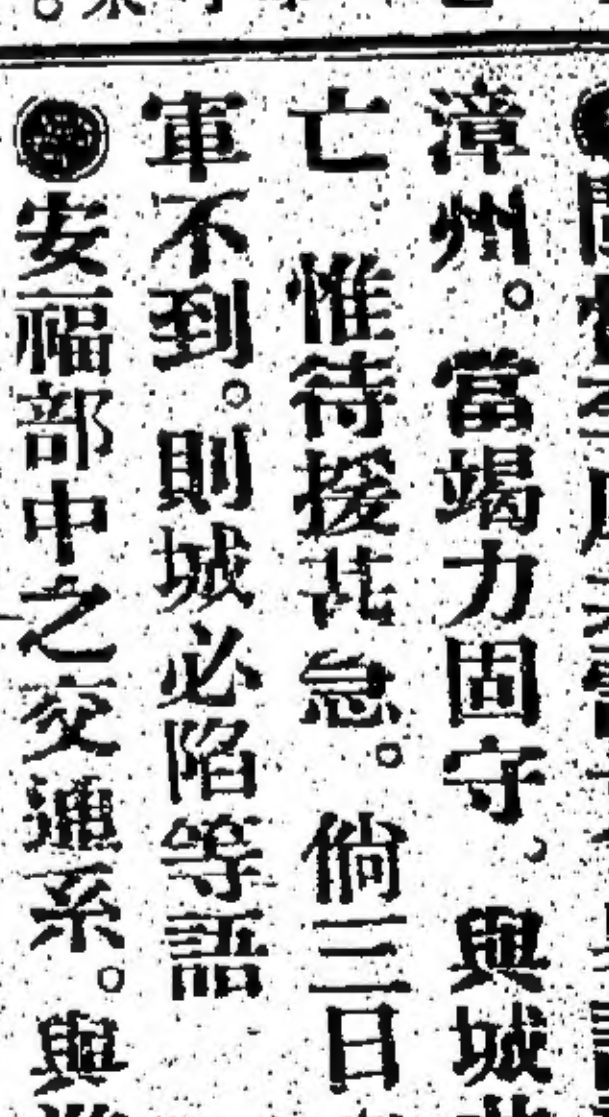 漳州。當竭力固守、與城
亡　惟待援甚急。倘三日
軍不到。則城必陷等語
●安福部中之交通系。與